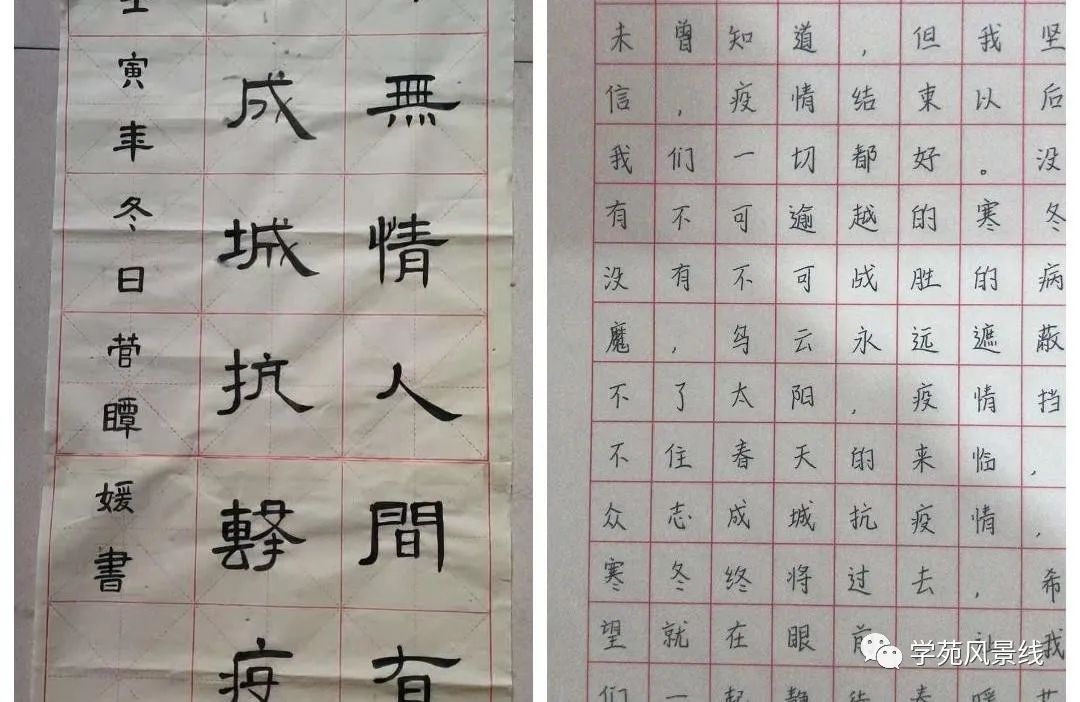 無情人間有
成城抗疫
寅年冬日媛書
未曾知道，但我坚
信，疫情结束以后
我们一切都好。没
有不可逾越的寒冬
没有不可战胜的病
魔，乌云永远遮蔽
不了太阳，疫情挡
不住春天的来临，
众志成城抗疫情，
寒冬终将过去，希
望就在眼前 让我
们一起静待春暖花
学苑风景线